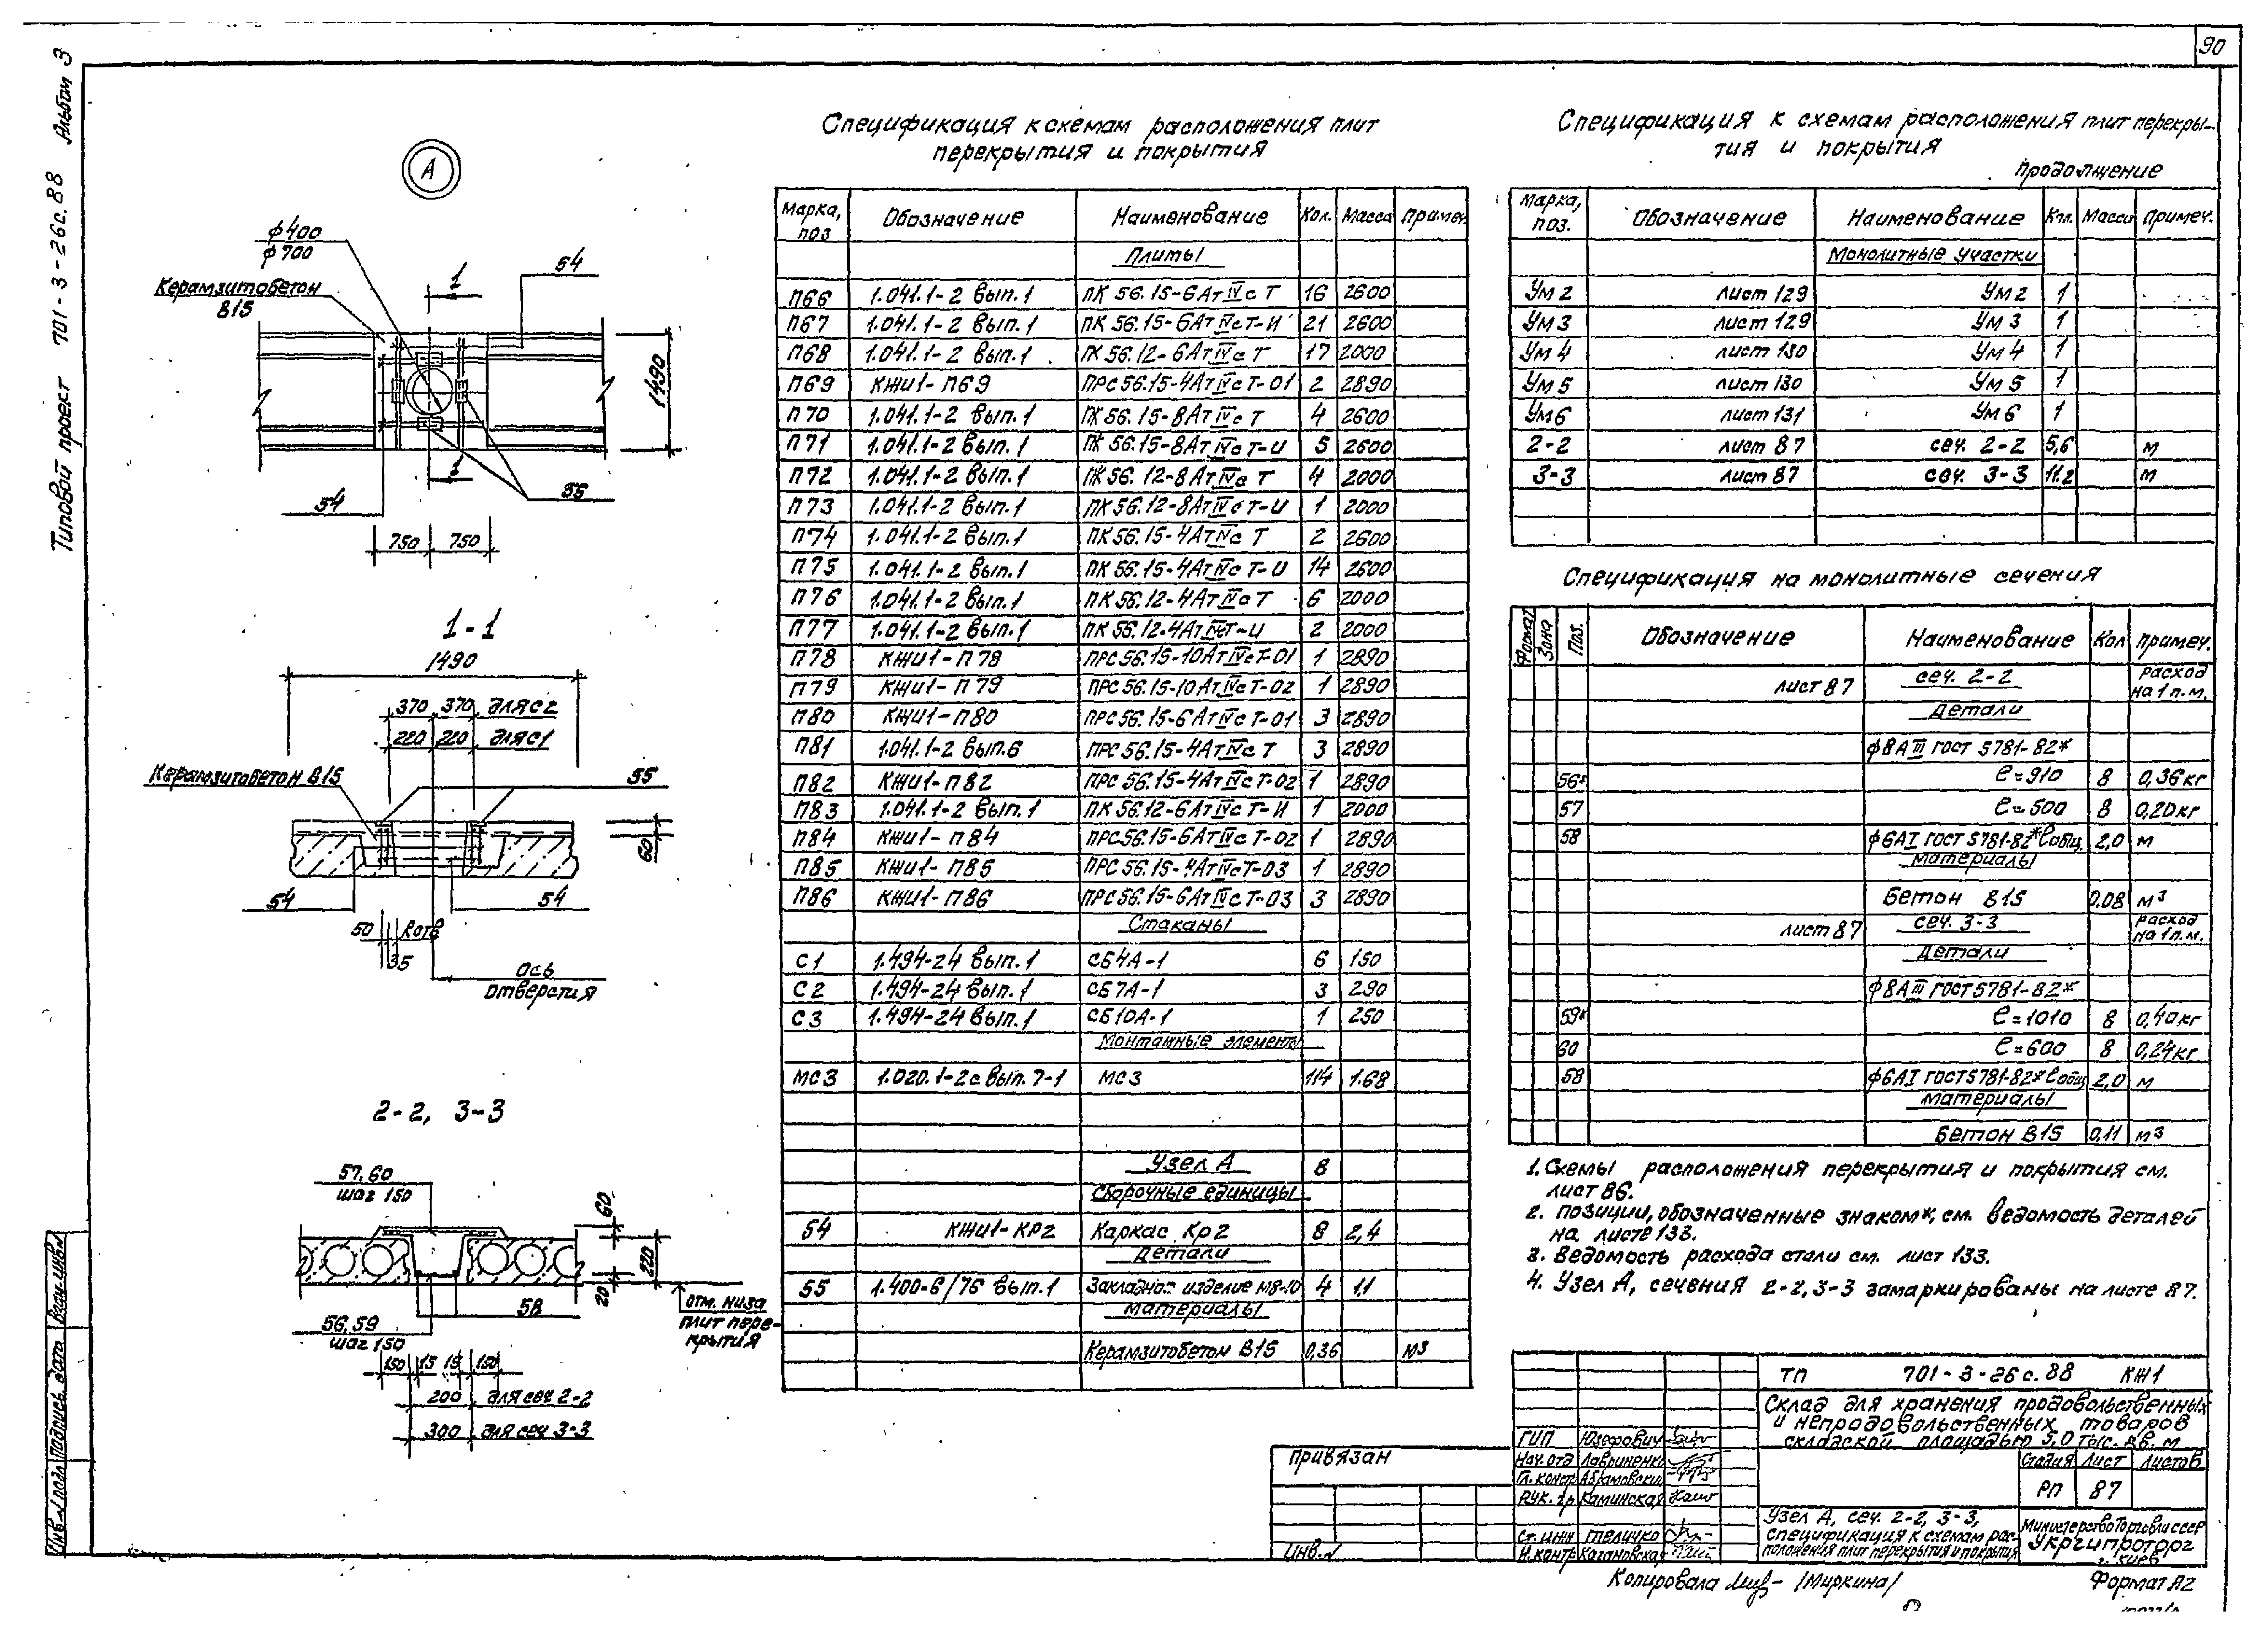 90
Типовой проект 701-3-26с.88 Альбом 3
А
ф400
ф700
Керамзитобетон
В15
1
54
1490
1
55
54
750 750
1-1
1490
370 370 для С2
220 220 для С1
Керамзитобетон В15
55
60
54
54
50 Rотв
35
ось
отверстия
2-2, 3-3
57,60
шаг 150
60
220
20
58
отм. низа
плит пере-
крытия
56,59
шаг 150
150 15 15 150
200 для сеч 2-2
300 для сеч 3-3
Спецификация к схемам расположения плит
перекрытия и покрытия
Марка, поз Обозначение Наименование Кол. Масса Примеч.
Плиты
П66 1.041.1-2 вып.1 ПК 56.15-6АтIVсТ 16 2600
П67 1.041.1-2 вып.1 ПК 56.15-6АтIVсТ-И 21 2600
П68 1.041.1-2 вып.1 ПК 56.12-6АтIVсТ 17 2000
П69 КЖИ1-П69 ПРС56.15-4АтIVсТ-01 2 2890
П70 1.041.1-2 вып.1 ПК 56.15-8АтIVсТ 4 2600
П71 1.041.1-2 вып.1 ПК 56.15-8АтIVсТ-И 5 2600
П72 1.041.1-2 вып.1 ПК 56.12-8АтIVсТ 4 2000
П73 1.041.1-2 вып.1 ПК 56.12-8АтIVсТ-И 1 2000
П74 1.041.1-2 вып.1 ПК 56.15-4АтIVсТ 2 2600
П75 1.041.1-2 вып.1 ПК 56.15-4АтIVсТ-И 14 2600
П76 1.041.1-2 вып.1 ПК 56.12-4АтIVсТ 6 2000
П77 1.041.1-2 вып.1 ПК 56.12-4АтIVсТ-И 2 2000
П78 КЖИ1-П78 ПРС56.15-10АтIVсТ-01 1 2890
П79 КЖИ1-П79 ПРС56.15-10АтIVсТ-02 1 2890
П80 КЖИ1-П80 ПРС56.15-6АтIVсТ-01 3 2890
П81 1.041.1-2 вып.6 ПРС56.15-4АтIVсТ 3 2890
П82 КЖИ1-П82 ПРС56.15-4АтIVсТ-02 1 2890
П83 1.041.1-2 вып.1 ПК 56.12-6АтIVсТ-И 1 2000
П84 КЖИ1-П84 ПРС56.15-6АтIVсТ-02 1 2890
П85 КЖИ1-П85 ПРС56.15-4АтIVсТ-03 1 2890
П86 КЖИ1-П86 ПРС56.15-6АтIVсТ-03 3 2890
Стаканы
С1 1.494-24 вып.1 СБ4А-1 6 150
С2 1.494-24 вып.1 СБ7А-1 3 290
С3 1.494-24 вып.1 СБ10А-1 1 250
Монтажные элементы
МС3 1.020.1-2с вып.7-1 МС3 114 1.68
Узел А 8
Сборочные единицы
54 КЖИ1-КР2 Каркас Кр2 8 2,4
Детали
55 1.400-6/76 вып.1 Закладное изделие М8-10 4 1,1
Материалы
Керамзитобетон В15 0,36 м3
Спецификация к схемам расположения плит перекры-
тия и покрытия
продолжение
Марка, поз. Обозначение Наименование Кол. Масса Примеч.
Монолитные участки
Ум2 лист 129 Ум2 1
Ум3 лист 129 Ум3 1
Ум4 лист 130 Ум4 1
Ум5 лист 130 Ум5 1
Ум6 лист 131 Ум6 1
2-2 лист 87 сеч. 2-2 5,6 м
3-3 лист 87 сеч. 3-3 11.2 м
Спецификация на монолитные сечения
Формат Зона Поз. Обозначение Наименование Кол Примеч.
лист 87 сеч. 2-2 расход на 1 п.м.
Детали
ф8АIII ГОСТ 5781-82*
56* ℓ=910 8 0,36кг
57 ℓ=500 8 0,20кг
58 ф6АI ГОСТ 5781-82* ℓобщ. 2,0 м
Материалы
Бетон В15 0.08 м3
лист 87 сеч. 3-3 расход на 1 п.м.
Детали
ф8АIII ГОСТ 5781-82*
59* ℓ=1010 8 0,40кг
60 ℓ=600 8 0,24кг
58 ф6АI ГОСТ 5781-82* ℓобщ 2,0 м
Материалы
Бетон В15 0,11 м3
1. Схемы расположения перекрытия и покрытия см.
лист 86.
2. Позиции, обозначенные знаком*, см. ведомость деталей
на листе 133.
3. Ведомость расхода стали см. лист 133.
4. Узел А, сечения 2-2, 3-3 замаркированы на листе 87.
ТП 701-3-26с.88 КЖ1
Склад для хранения продовольственных
и непродовольственных товаров
складской площадью 5,0 тыс. кв. м
ГИП Юзефович
Нач. отд Лавриненко
Гл. констр Абрамовский
Рук. гр Каминская
Ст. инж Теличко
Н. контр Кагановская
Стадия Лист Листов
РП 87
Узел А, сеч. 2-2, 3-3,
спецификация к схемам рас-
положения плит перекрытия и покрытия
Министерство торговли СССР
Укргипроторг
г. Киев
Привязан
Инв. №
Инв. № подл. Подпись, дата Взам. инв. №
Копировала /Миркина/
Формат А2